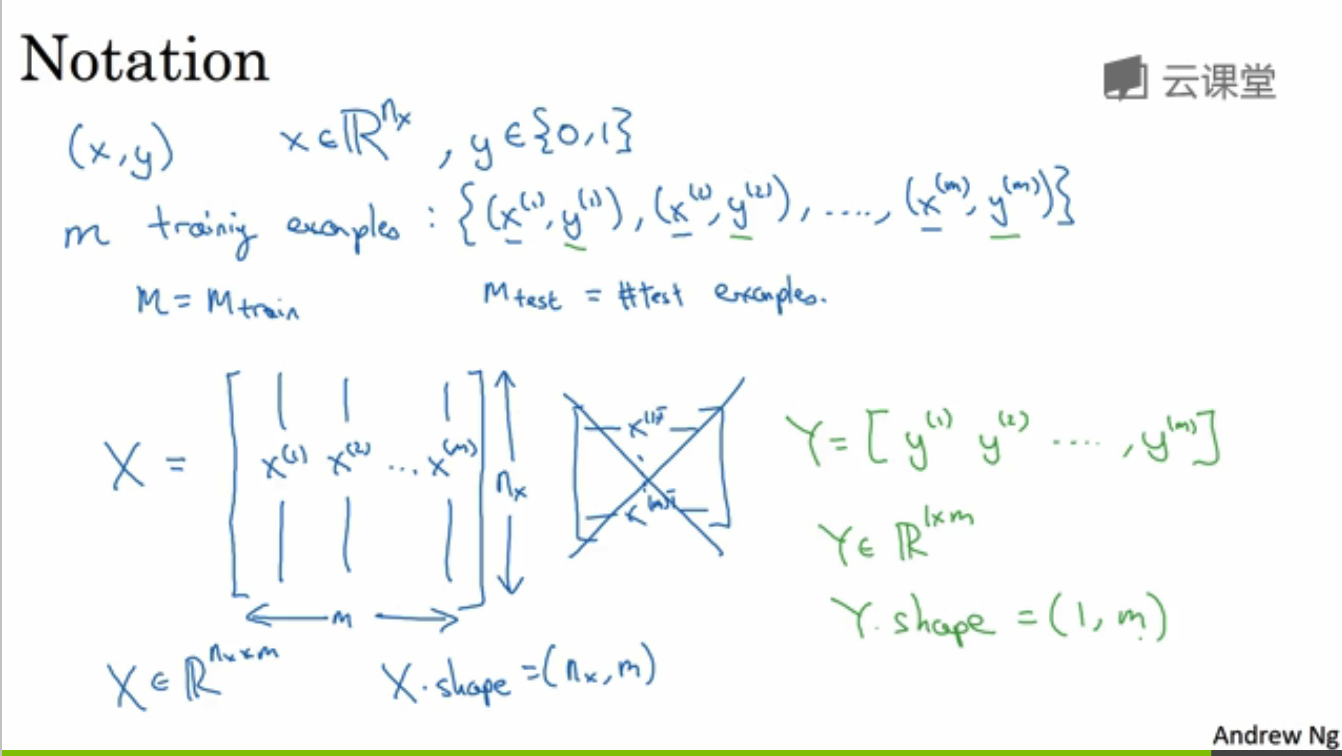 Notation
云课堂
(x,y) x∈ℝ^{n_x}, y∈{0,1}
m training examples : {(x^{(1)}, y^{(1)}), (x^{(2)}, y^{(2)}), ...., (x^{(m)}, y^{(m)})}
M = M_{train} M_{test} = #test examples.
X = [ x^{(1)} x^{(2)} ... x^{(m)} ] n_x
m
x^{(1)T}
x^{(m)T}
Y = [ y^{(1)} y^{(2)} ...., y^{(m)} ]
Y ∈ ℝ^{1×m}
Y.shape = (1, m)
X ∈ ℝ^{n_x×m} X.shape = (n_x, m)
Andrew Ng